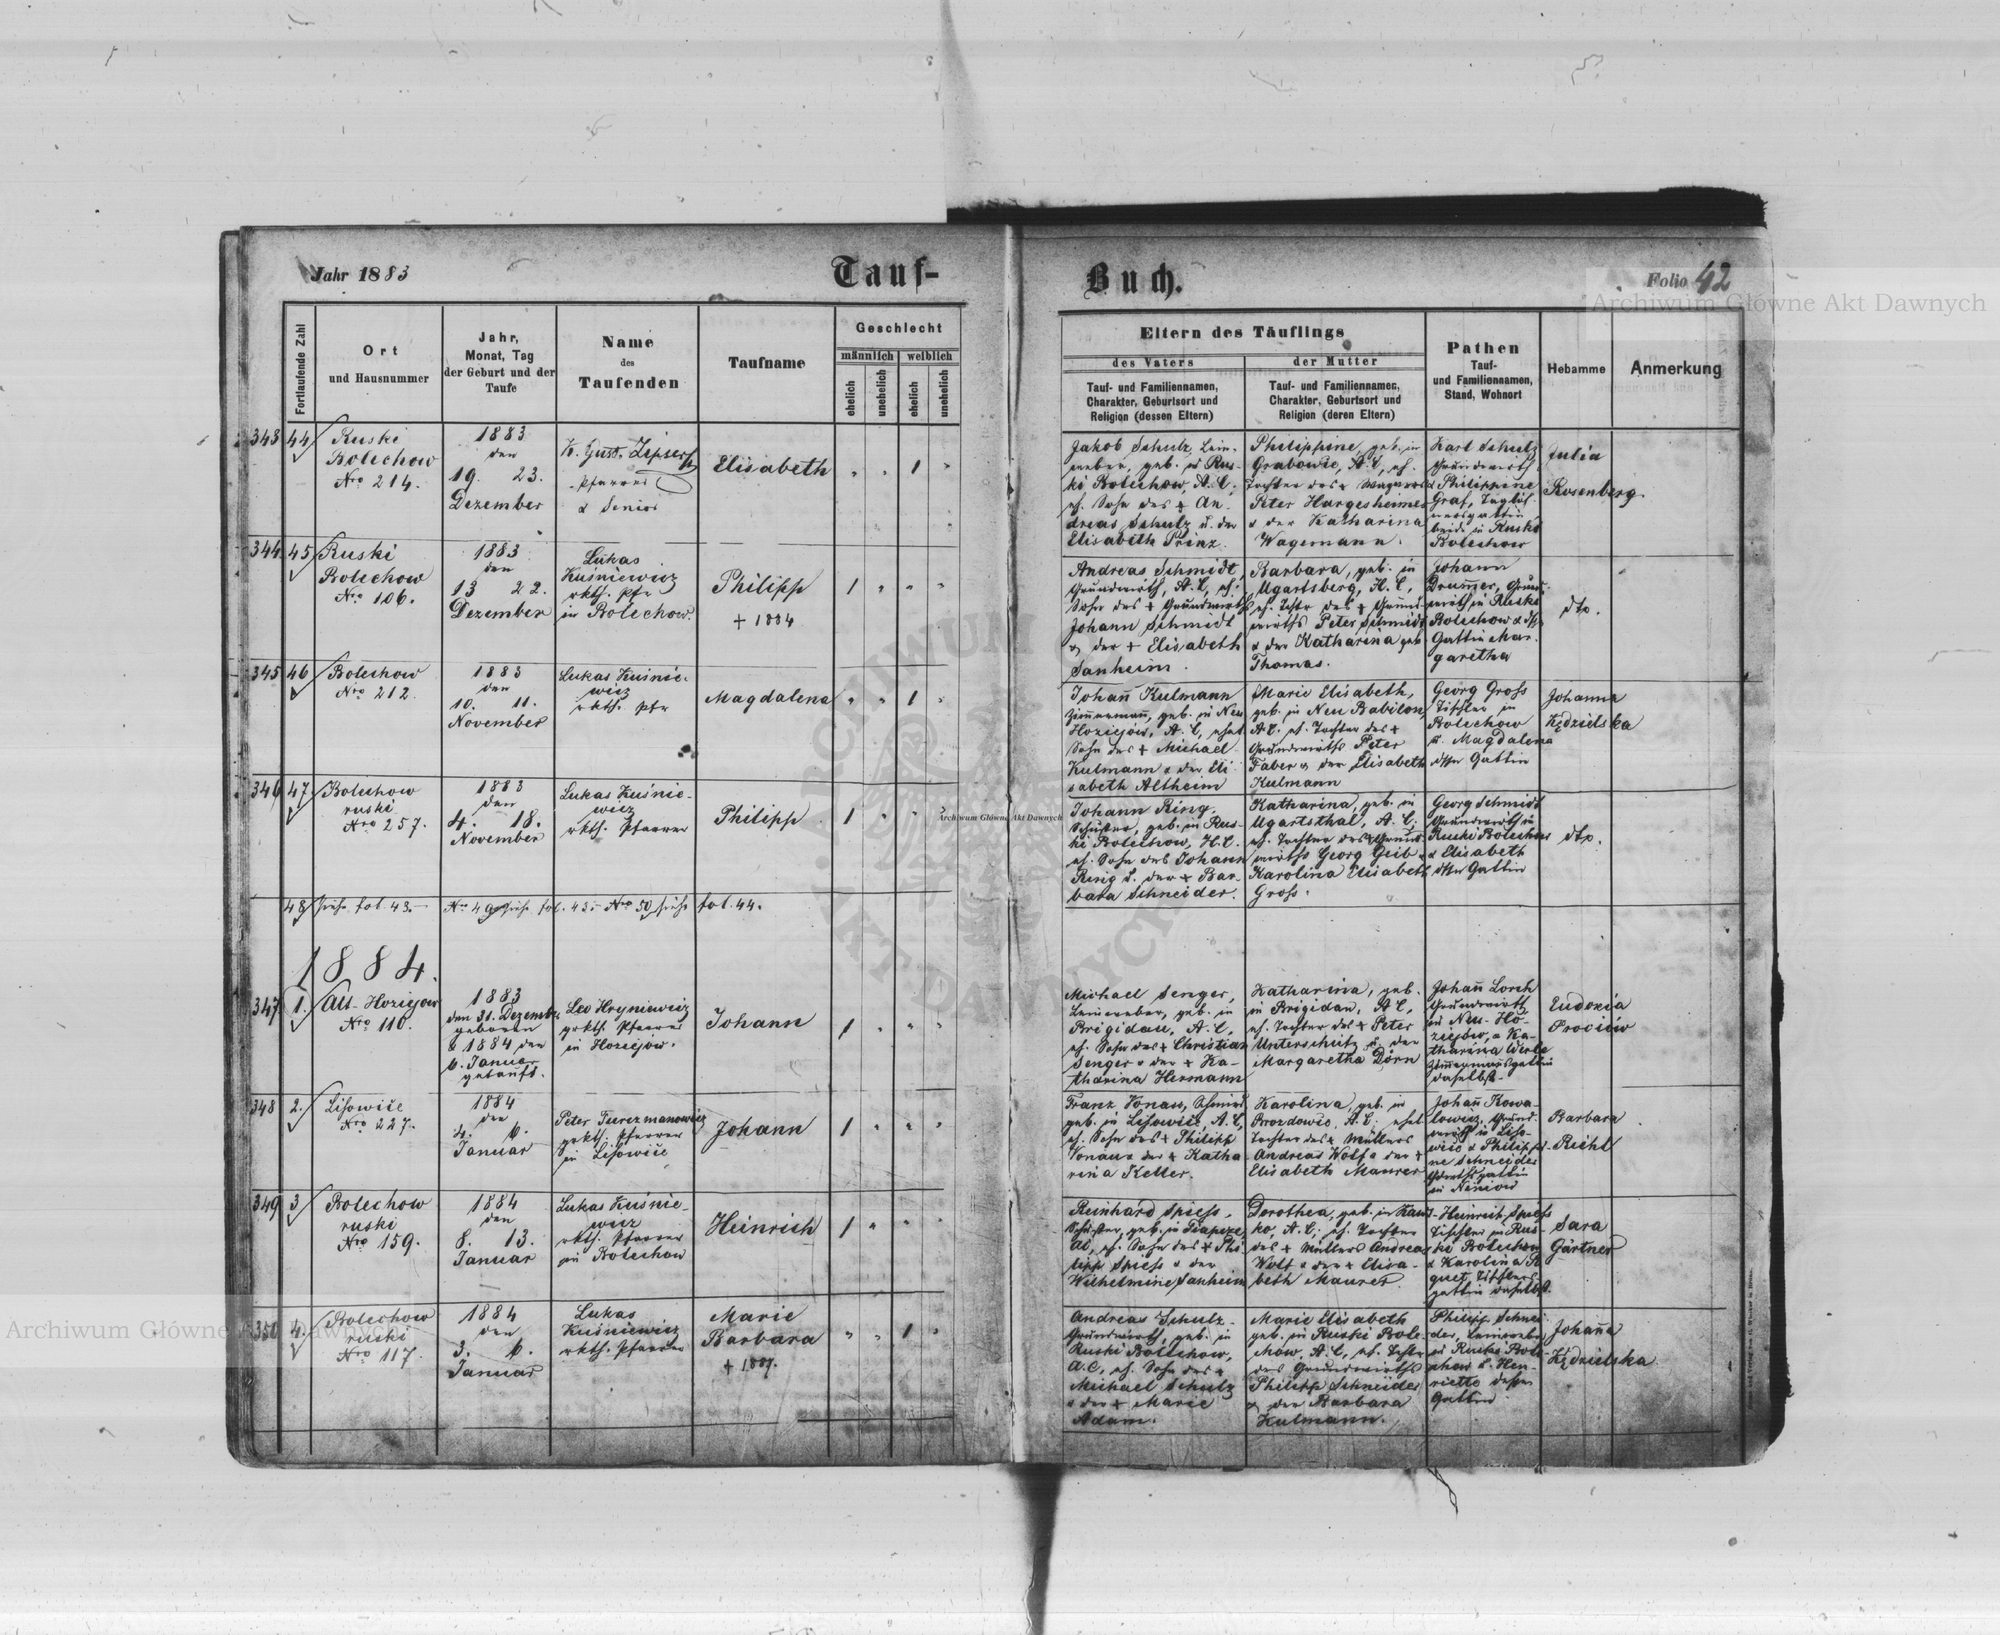 Jahr 1883
Tauf-
Buch.
Folio 42
Archiwum Główne Akt Dawnych
Fortlaufende Zahl
Ort
und Hausnummer
Jahr,
Monat, Tag
der Geburt und der
Taufe
Name
des
Taufenden
Taufname
Geschlecht
männlich
weiblich
ehelich
unehelich
ehelich
unehelich
Eltern des Täuflings
des Vaters
der Mutter
Tauf- und Familiennamen,
Charakter, Geburtsort und
Religion (dessen Eltern)
Tauf- und Familiennamen,
Charakter, Geburtsort und
Religion (deren Eltern)
Pathen
Tauf-
und Familiennamen,
Stand, Wohnort
Hebamme
Anmerkung
343
44
Ruski
Bolechow
Nro 214.
1883
den
19. 23.
Dezember
Pfarrer
& Senior
Elisabeth
1
Jakob Schulz, Lein-
weber, geb. in Rus-
ki Bolechow, A.C.,
eh. Sohn des + An-
dreas Schulz u. der
Elisabeth Prinz.
Philippine, geb. in
Grabowie, A.C., eh.
Tochter des + Wagners
Peter Hargesheimer
& der Katharina
Wagemann.
Karl Schulz
Grundwirth
& Philippine
Graf, Taglöh-
nersgattin
beide in Ruski
Bolechow
Julia
Rosenberg.
344
45
Ruski
Bolechow
Nro 106.
1883
den
13 22.
Dezember
Lukas
Kuśniewicz
rkth. Pfr
in Bolechow.
Philipp
+ 1884
1
Andreas Schmidt,
Grundwirth, A.C., eh.
Sohn des + Grundwirths
Johann Schmidt
& der + Elisabeth
Sanheim.
Barbara, geb. in
Ugartsberg, H.C.,
eh. Tochter des + Grund-
wirths Peter Schmidt
& der Katharina geb
Thomas.
Johann
Drummer, Grund-
wirth in Ruski
Bolechow &
Gattin Mar-
garetha
dto.
345
46
Bolechow
Nro 212.
1883
den
10. 11.
November
Lukas Kuśnie-
wicz
rkth. Pfr
Magdalena
1
Johann Kulmann
Zimmermann, geb. in Neu
Hoziejów, A.C., ehel
Sohn des + Michael
Kulmann & der Eli-
sabeth Altheim
Marie Elisabeth,
geb. in Neu Babilon,
A.C. eh. Tochter des +
Grundwirths Peter
Faber & der Elisabeth
Kulmann
Georg Gross
Tischler in
Bolechow
u. Magdalena
Gattin
Johanna
Kędzielska
346
47
Bolechow
ruski
Nro 257.
1883
den
4. 18.
November
Lukas Kuśnie-
wicz
rkth. Pfarrer
Philipp
1
Johann Ring,
Schuster, geb. in Rus-
ki Bolechow, H.C.
eh. Sohn des Johann
Ring u. der + Bar-
bara Schneider.
Katharina, geb. in
Ugartsthal, A.C.
eh. Tochter des + Grund-
wirths Georg Geib &
Karolina Elisabeth
Gross.
Georg Schmidt
Grundwirth in
Ruski Bolechow
& Elisabeth
Gattin
dto.
48
siehe fol 43.
Nro 49 siehe fol. 43. Nro 50 siehe fol. 44.
1884.
347
1.
Alt-Hoziejow
Nro 110.
1883
den 31. Dezember
geboren
& 1884 den
6. Januar
getauft.
Leo Hryniewicz
grkth. Pfarrer
in Hoziejow.
Johann
1
Michael Senger,
Leinweber, geb. in
Brigidau, A.C.,
eh. Sohn des + Christian
Senger & der + Ka-
tharina Hermann
Katharina, geb.
in Brigidau, A.C.,
eh. Tochter des + Peter
Unterschütz u. der
Margaretha Dörn
Johann Lorch
Grundwirth
in Neu-Ho-
ziejów, & Ka-
tharina Werle
Zimmermannsgattin
daselbst.
Eudoxia
Prociów
348
2.
Lisowice
Nro 227.
1884
den
4. 6.
Januar
Peter Turczmanowicz
grkth. Pfarrer
in Lisowice
Johann
1
Franz Vonau, Schmied
geb. in Lisowice, A.C.,
eh. Sohn des + Philipp
Vonau & der + Katha-
rina Keller.
Karolina, geb. in
Brozdowic, A.C., ehel
Tochter des + Müllers
Andreas Wolf & der +
Elisabeth Maurer
Johann Kowa-
lowicz, Grund-
wirth in Liso-
wice & Philippi-
ne Schneider
in Niniow
Barbara
Richt
349
3
Bolechow
ruski
Nro 159.
1884
den
8. 13.
Januar
Lukas Kuśnie-
wicz
rkth. Pfarrer
in Bolechow
Heinrich
1
Reinhard Spiess,
Schuster, geb. in
AC, eh. Sohn des + Phi-
lipp Spiess & der
Wilhelmine Sanheim
Dorothea, geb. in
A.C., eh. Tochter
des + Müllers Andreas
Wolf & der + Elisa-
beth Maurer
Heinrich Spiess
Tischler in Rus-
ki Bolechow
& Karolina
Tischlers-
gattin daselbst.
Sara
Gärtner
350
4.
Bolechow
ruski
Nro 117.
1884
den
3. 6.
Januar
Lukas
Kuśniewicz
rkth. Pfarrer
Marie
Barbara
+ 1887.
1
Andreas Schulz
Grundwirth, geb. in
Ruski Bolechow,
A.C., eh. Sohn des +
Michael Schulz
& der + Marie
Adam.
Marie Elisabeth
geb. in Ruski Bole-
chow, A.C., eh. Tochter
des Grundwirths
Philipp Schneider
& der Barbara
Kulmann.
Philipp Schnei-
der, Leinweber
in Ruski Bole-
chow & Hen-
riette dessen
Gattin
Johanna
Kędzielska.
Archiwum Główne Akt Dawnych
Archiwum Główne Akt Dawnych